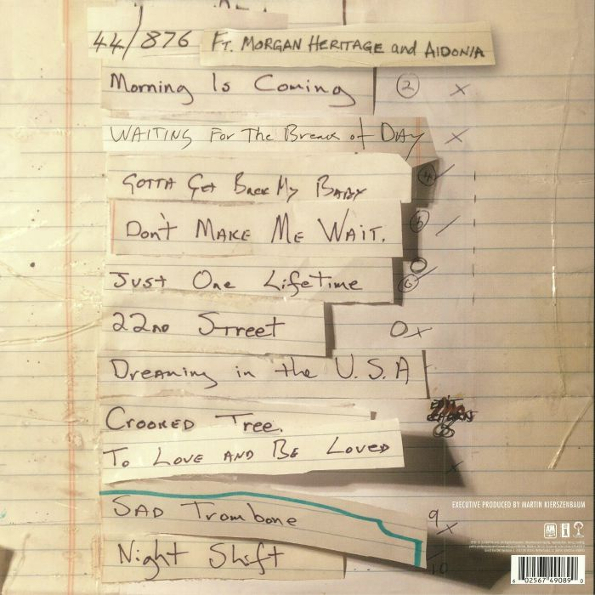 44/876 FT. MORGAN HERITAGE and AIDONIA
Morning Is Coming 2 x
WAITING For The Break of DAY x
GOTTA Get Back My BABY
Don't MAKE ME WAIT.
Just One Lifetime
22ND Street 0 x
Dreaming in the U.S.A
CROOKED Tree.
To LOVE AND BE LOVED
EXECUTIVE PRODUCED BY MARTIN KIERSZENBAUM
SAD Trombone 9 x
Night Shift 10
6 02567 49089 0